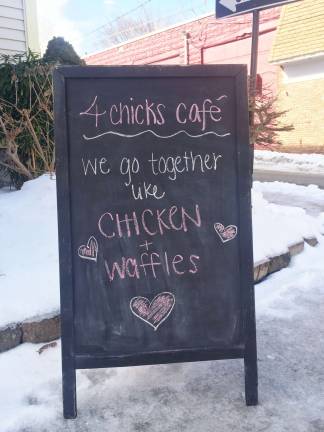 4 chicks café
we go together
like
CHICKEN
+
waffles